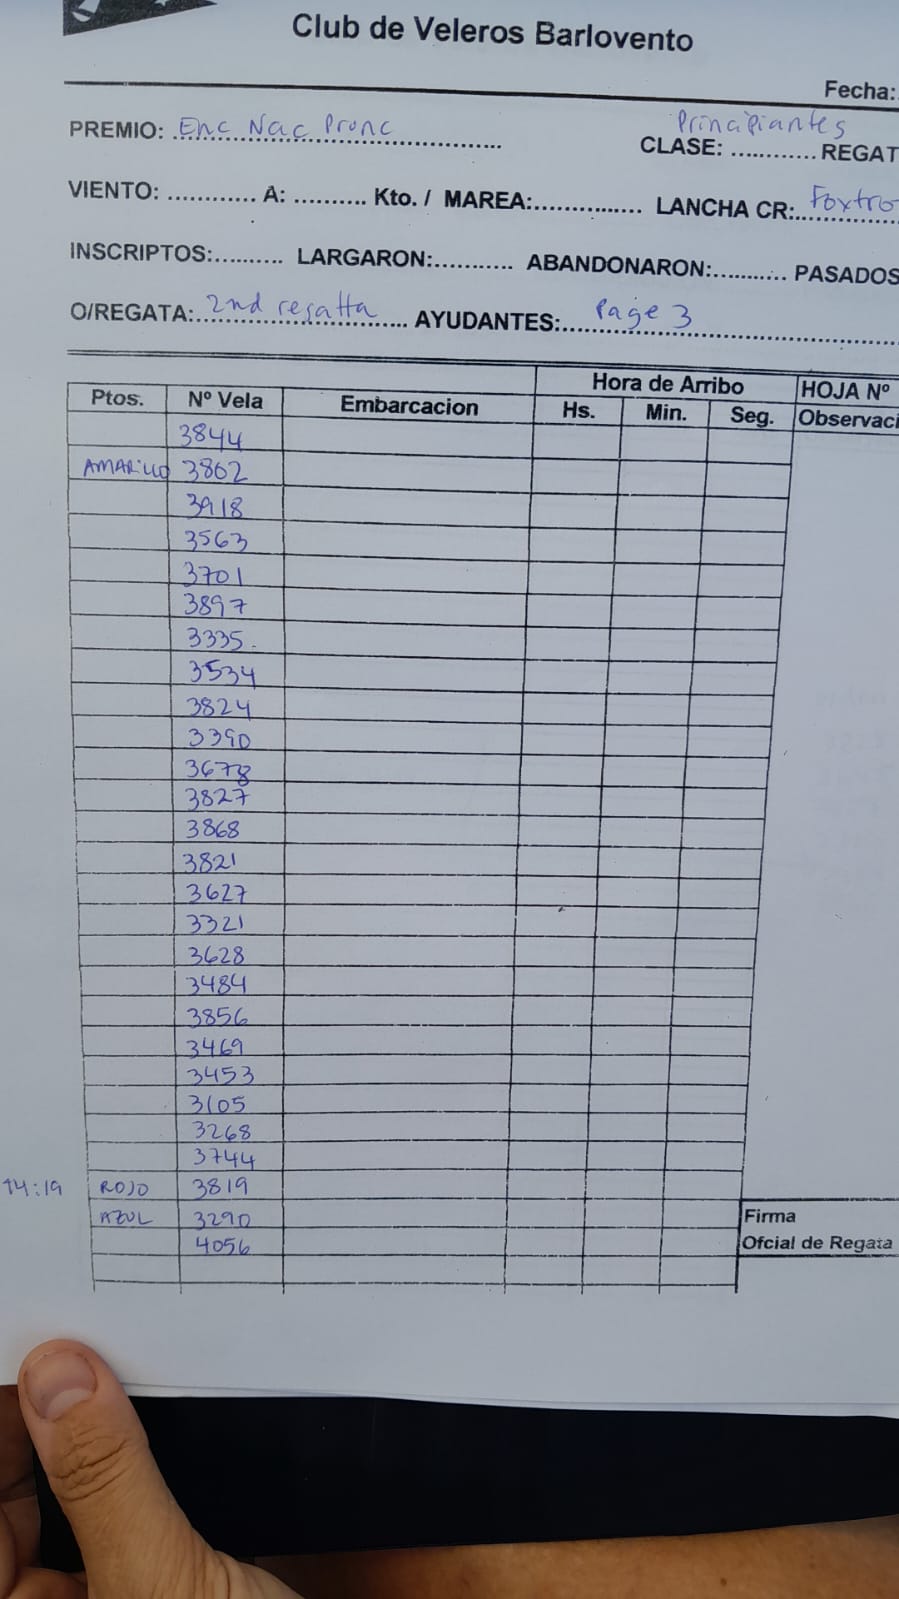 Club de Veleros Barlovento
Fecha:
PREMIO: Enc Nac Prunc
CLASE: Principiantes REGAT
VIENTO: ............ A: .......... Kto. / MAREA:................. LANCHA CR: Foxtro
INSCRIPTOS:.......... LARGARON:........... ABANDONARON:........... PASADOS
O/REGATA: 2nd regatta AYUDANTES: Page 3
Hora de Arribo HOJA Nº
Ptos. Nº Vela Embarcacion Hs. Min. Seg. Observaci
3844
AMARILLO 3862
3918
3563
3701
3897
3335.
3534
3824
3390
3678
3827
3868
3821
3627
3321
3628
3484
3856
3469
3453
3105
3268
3744
14:19 ROJO 3819
AZUL 3290
4056
Firma
Ofcial de Regata